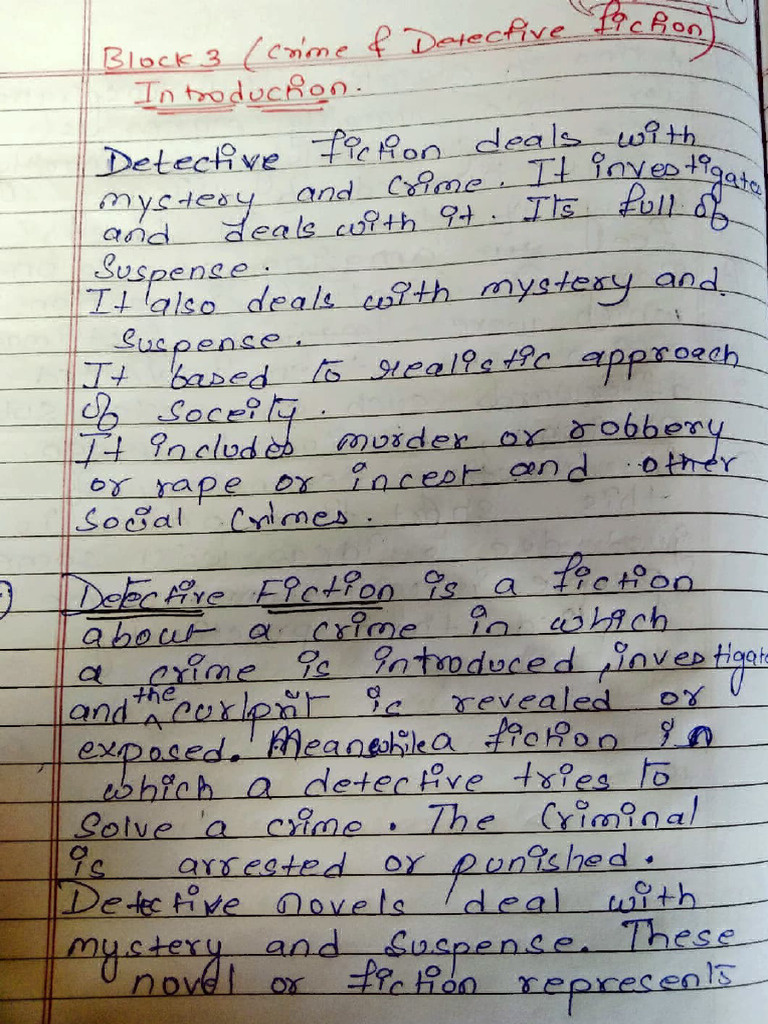 Block 3 (Crime & Detective fiction)
Introduction.
Detective fiction deals with
mystery and crime. It investigate
and deals with it. Its full of
Suspense.
It also deals with mystery and
suspense.
It based to realistic approach
of Soceity.
It includes murder or robbery
or rape or incest and other
Social Crimes.
Detective Fiction is a fiction
about a crime in which
a crime is introduced, investigate
and the curlprit is revealed or
exposed. Meanwhile a fiction in
which a detective tries to
Solve a crime. The Criminal
is arrested or punished.
Detective novels deal with
mystery and Suspense. These
novel or fiction represents